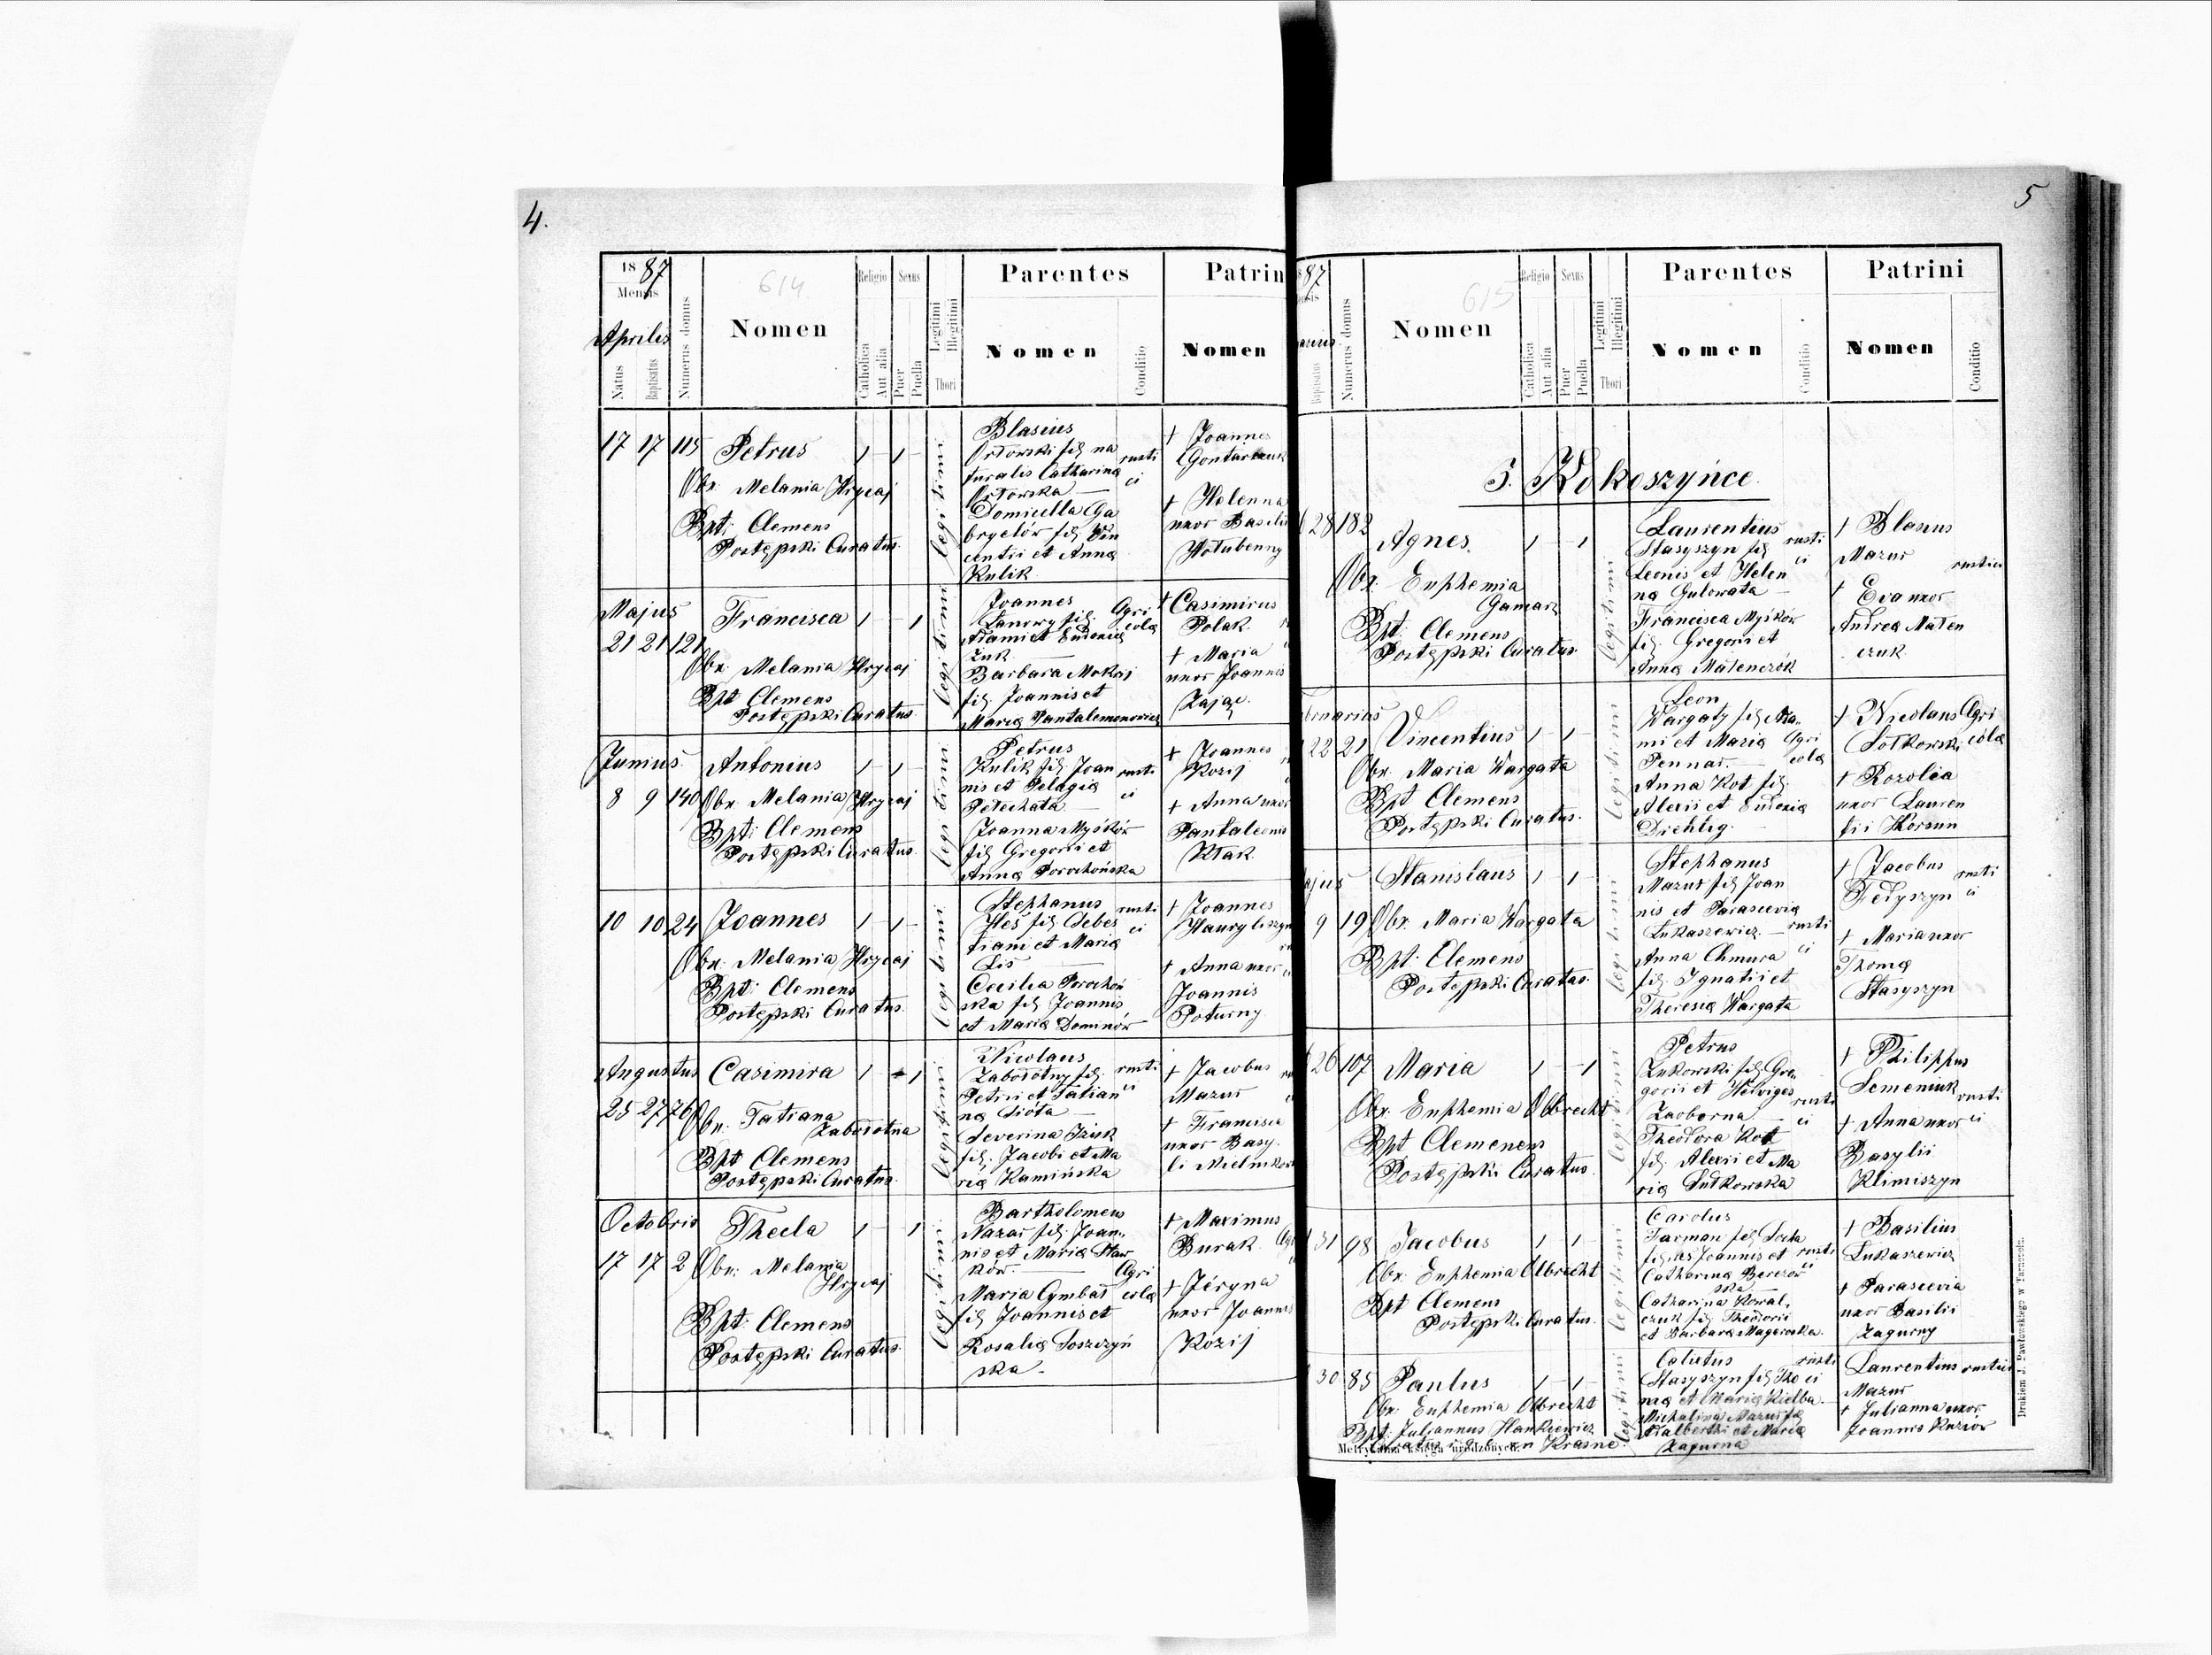 4.
1887
Mensis
Aprilis
Natus
Baptisatus
Numerus domus
614
Nomen
Religio
Catholica
Aut alia
Sexus
Puer
Puella
Legitimi
Illegitimi
Thori
Parentes
Nomen
Conditio
Patrin
Nomen
17 17 115 Petrus 1 - 1 -
Obx. Melania Hrycaj
Bpt: Clemens
Postępski Curatus.
legitimi
Blasius
Orłowski filj na
turalis Catharina
Orłowska —
Domicella Ga
bryelów filj Vin
centii et Anna
Kulik
rusti
ci
† Joannes
† Helenna
uxor Basilii
Hołubenny
Majus
21 21 121 Francisca 1 - - 1
Obx. Melania Hrycaj
Bpt Clemens
Postępski Curatus.
legitimi
Joannes
Łanowy filj.
Adami et Eudoxia
Żuk —
Barbara Mokrij
filj Joannis et
Maria Pantalemonowicz
Agri
cola
† Casimirus
Polak
† Maria
uxor Joannis
Zając.
Junius
8 9 140 Antonius 1 - 1 -
Obx. Melania Hrycaj
Bpt: Clemens
Postępski Curatus.
legitimi
Petrus
Kulik filj Joan
nis et Pelagia
Petechata —
Joanna Myśków
filj Gregorii et
Anna Porochońska
rusti
ci
† Joannes
Kozij
† Anna uxor
Pantaleonis
Kłak
10 10 24 Joannes 1 - 1 -
Obx. Melania Hrycaj
Bpt: Clemens
Postępski Curatus.
legitimi
Stephanus
Hleś filj Sebes
tiani et Maria
Lis —
Cecilia Porochoń
ska filj Joannis
et Maria Dominów
rusti
ci
† Joannes
Hauryliszyn
† Anna uxor
Joannis
Poturny
Augustus
25 27 76 Casimira 1 - 1
Obx. Tatiana
Zabołotna
Bpt Clemens
Postępski Curatus.
legitimi
Nicolaus
Zabołotny filj.
Petri et Tatian
na Sióta —
Severina Iżuk
filj. Jacobi et Ma
ria Kamińska
rusti
ci
† Jacobus
Mazur
† Francisca
uxor Basy
li Mielnikow
Octobris
17 17 2 Thecla 1 - - 1
Obx: Melania
Hrycaj
Bpt: Clemens
Postępski Curatus.
legitimi
Bartholomeus
Nazar filj Joan.
nis et Maria Staw
ków —
Maria Cymbał
filj Joannis et
Rosalia Soszczyń
ska —
Agri
cola
† Maximus
Burak
† Jéryna
uxor Joannis
Kozij
5
87
Baptisatus
Numerus domus
615
Nomen
Religio
Catholica
Aut alia
Sexus
Puer
Puella
Legitimi
Illegitimi
Thori
Parentes
Nomen
Conditio
Patrini
Nomen
Conditio
3. Kokoszyńce.
28 182 Agnes. 1 - - 1
Obx. Euphemia
Gamarz
Bpt. Clemens
Postępski Curatus.
legitimi
Laurentius
Stasyszyn filj
Leonis et Helen
na Gulowata —
Francisca Myśków
filj. Gregorii et
Anna Matenczók
rusti
ci
† Blasius
Mazur
rustici
† Eva uxor
Andrea Maten
czuk
bruarius
22 21 Vincentius 1 - 1 -
Obx. Maria Wargata
Bpt Clemens
Postępski Curatus.
legitimi
Leon
Wargaty filj Ma..
mi et Maria
Pennar. —
Anna Kot filj
Alexii et Eudoxia
Drehlig. —
Agri
cola
† Nicolaus
Sołkowski
Agri
cola
† Rozolia
uxor Lauren
tii Korsun
ajus
9 19 Stanislaus 1 - 1 -
Obx. Maria Wargata
Bpt. Clemens
Postępski Curatus.
legitimi
Stephanus
Mazur filj Joan
nis et Parascevia
Łukaszewicz. —
Anna Chmura
filj. Ignatii et
Theresia Wargata
rusti
ci
† Jacobus
Fedyszyn
rusti
ci
† Maria uxor
Thoma
Stasyszyn
26 107 Maria 1 - - 1
Obx. Euphemia Olbrecht
Bpt Clemenens
Postępski Curatus.
legitimi
Petrus
Żukowski filj Gre
gorii et Hedviges
Zaoborna —
Theodora Kot
filj. Alexii et Ma
ria Sutkowska
rusti
ci
† Philippus
Semeniuk
rusti
ci
† Anna uxor
Basylii
Klimiszyn
31 98 Jacobus 1 - 1 -
Obx. Euphemia Olbrecht
Bpt Clemens
Postępski Curatus.
legitimi
Carolus
Catharina
ska
Catharina Kowal.
czuk filj Theodorii
et Barbara Magerowska.
rusti
ci
† Basilius
Łukaszewicz
† Parascevia
uxor Basilii
Zagurny
30 85 Paulus 1 - 1 -
Obx. Euphemia Olbrecht
Bpt. Juljannus Hankiewicz
Krasne
legitimi
Calistus
Stasyszyn filj Tho
ma et Maria Kielba.
Michalina Mazur filj
Adalberthi et Maria
Zagurna
rusti
ci
Laurentius
Mazur
rustici
† Julianna uxor
Joannis Kuziów
Metrykalna księga urodzonych.
Drukiem J. Pawłowskiego w Tarnopolu.